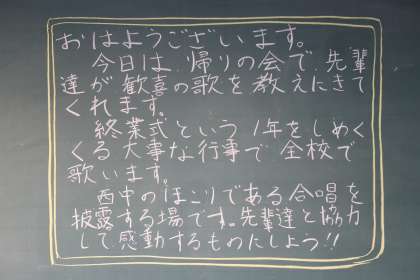 おはようございます。
今日は、帰りの会で、先輩
達が歓喜の歌を教えにきて
くれます。
終業式という1年をしめく
くる大事な行事で全校で
歌います。
西中のほこりである合唱を
披露する場です。先輩達と協力
して感動するものにしよう!!